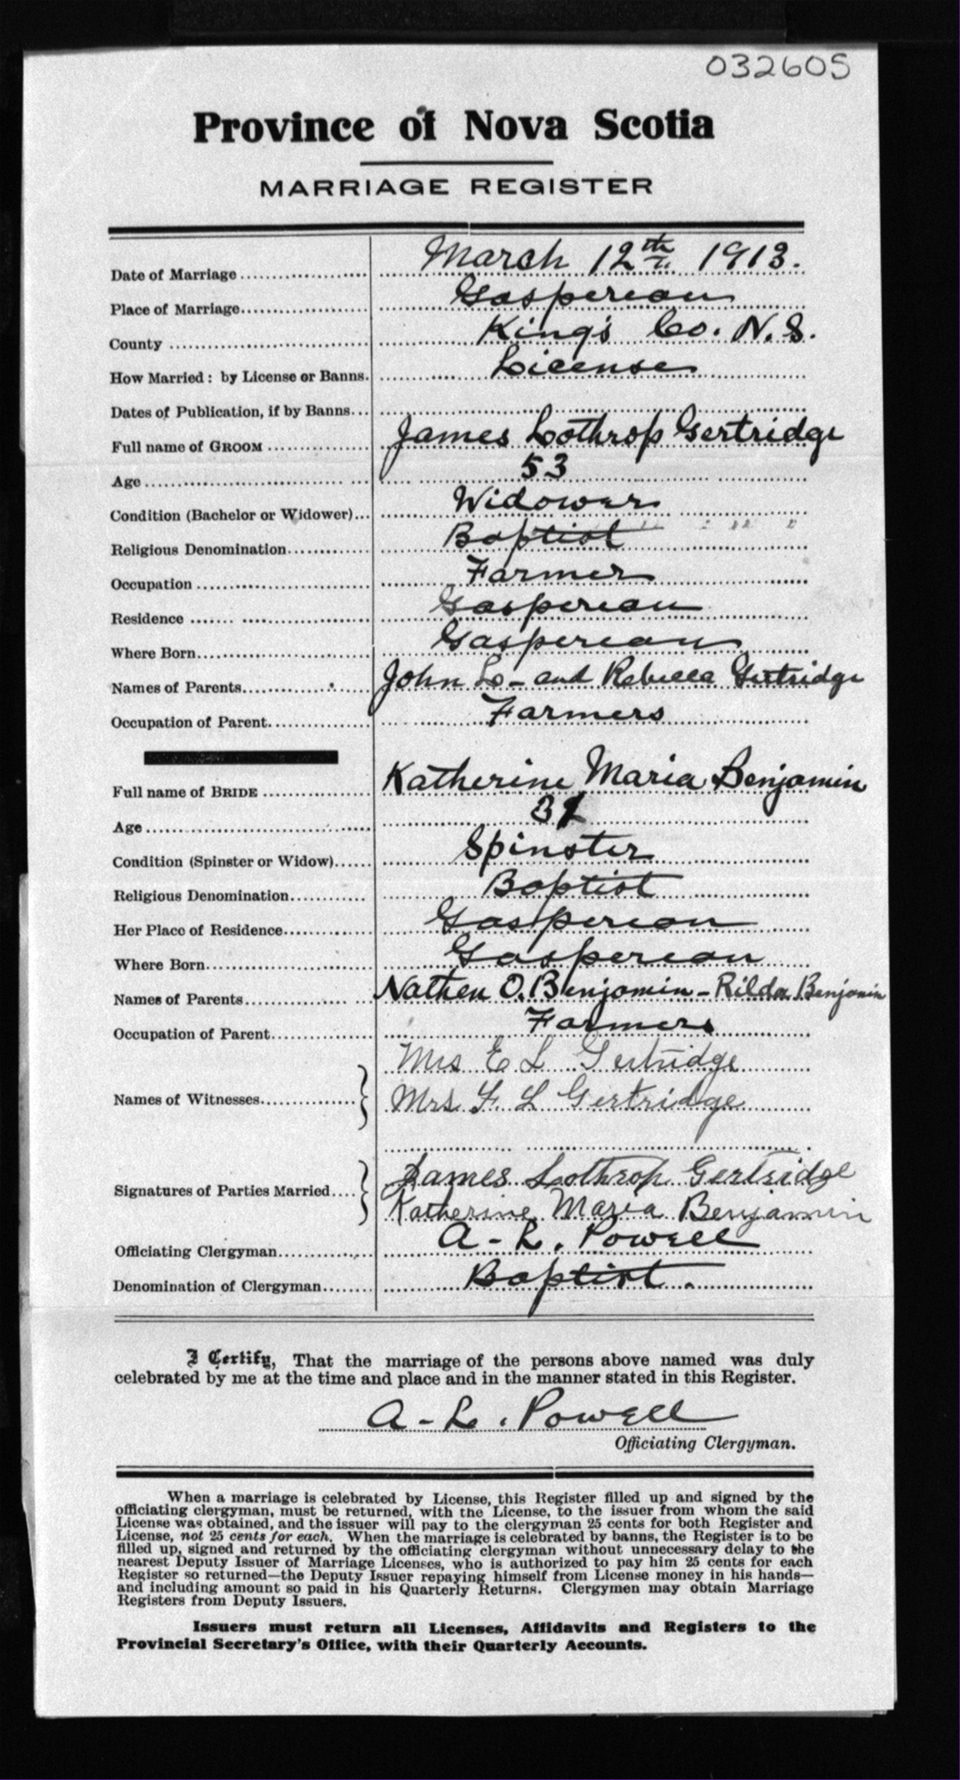 032605
Province of Nova Scotia
MARRIAGE REGISTER
Date of Marriage March 12th 1913.
Place of Marriage Gaspereau
County King's Co. N.S.
How Married: by License or Banns. License
Dates of Publication, if by Banns
Full name of GROOM James Lothrop Gertridge
Age 53
Condition (Bachelor or Widower) Widower
Religious Denomination Baptist
Occupation Farmer
Residence Gaspereau
Where Born Gaspereau
Names of Parents John L- and Rebecca Gertridge
Occupation of Parent Farmers
Full name of BRIDE Katherine Maria Benjamin
Age
Condition (Spinster or Widow) Spinster
Religious Denomination Baptist
Her Place of Residence Gasperau
Where Born Gaspereau
Names of Parents Nathen O. Benjamin - Rilda Benjamin
Occupation of Parent Farmers
Mrs E L Gertridge
Names of Witnesses Mrs F. L Gertridge
James Lothrop Gertridge
Signatures of Parties Married
Katherine Maria Benjamin
Officiating Clergyman A-L. Powell
Denomination of Clergyman Baptist.
I Certify, That the marriage of the persons above named was duly
celebrated by me at the time and place and in the manner stated in this Register.
A-L. Powell
Officiating Clergyman.
When a marriage is celebrated by License, this Register filled up and signed by the
officiating clergyman, must be returned, with the License, to the issuer from whom the said
License was obtained, and the issuer will pay to the clergyman 25 cents for both Register and
License, not 25 cents for each. When the marriage is celebrated by banns, the Register is to be
filled up, signed and returned by the officiating clergyman without unnecessary delay to the
nearest Deputy Issuer of Marriage Licenses, who is authorized to pay him 25 cents for each
Register so returned—the Deputy Issuer repaying himself from License money in his hands—
and including amount so paid in his Quarterly Returns. Clergymen may obtain Marriage
Registers from Deputy Issuers.
Issuers must return all Licenses, Affidavits and Registers to the
Provincial Secretary's Office, with their Quarterly Accounts.